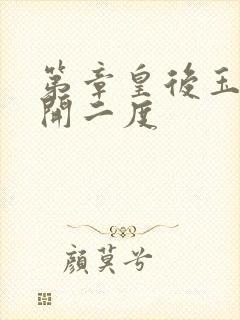 第章皇後玉
開二度
顏莫兮